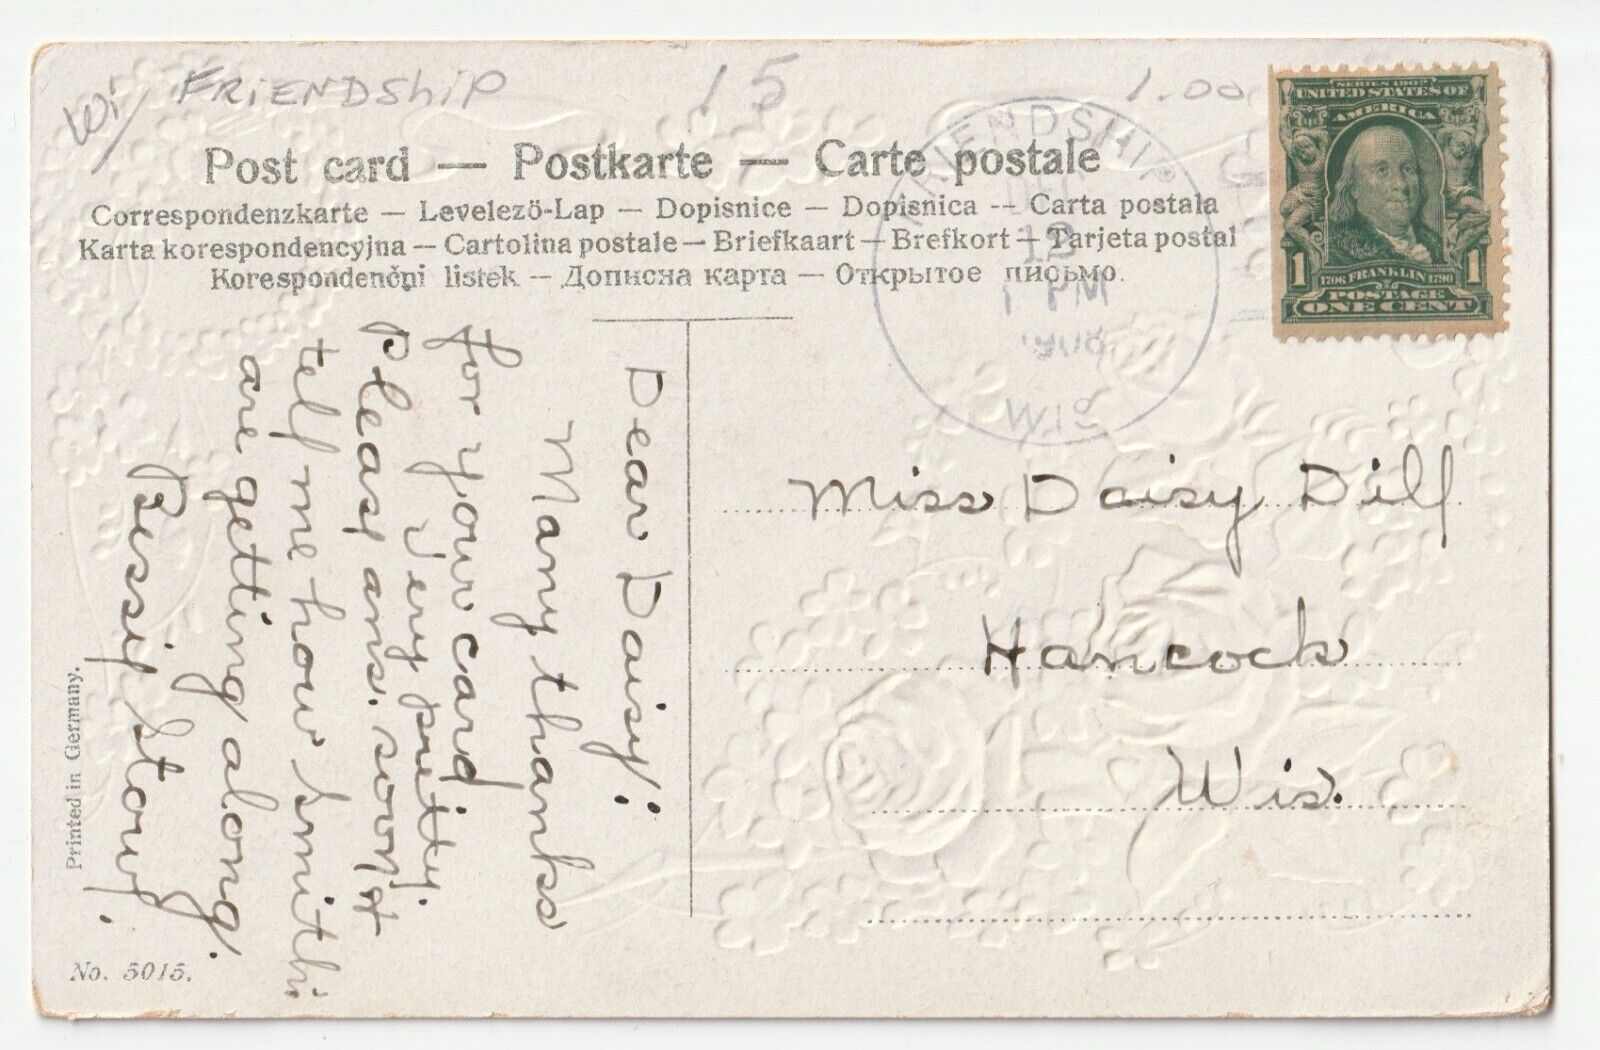 Wi
FRIENDSHIP
15
1.00
Post card — Postkarte — Carte postale
Correspondenzkarte — Levelező-Lap — Dopisnice — Dopisnica -- Carta postala
Karta korespondencyjna — Cartolina postale — Briefkaart — Brefkort — Tarjeta postal
Korespondenčni listek — Дописна карта — Открытое письмо.
FRIENDSHIP
13
1 PM
1908
WIS
SERIES 1902
UNITED STATES OF
AMERICA
1706 FRANKLIN 1790
1 1
POSTAGE
ONE CENT
Dear Daisy:
Many thanks
for your card
Very pretty.
Please ans. soon &
tell me how Smith
are getting along.
Bessie Stowe.
Miss Daisy Dill
Hancock
Wis.
Printed in Germany.
No. 5015.